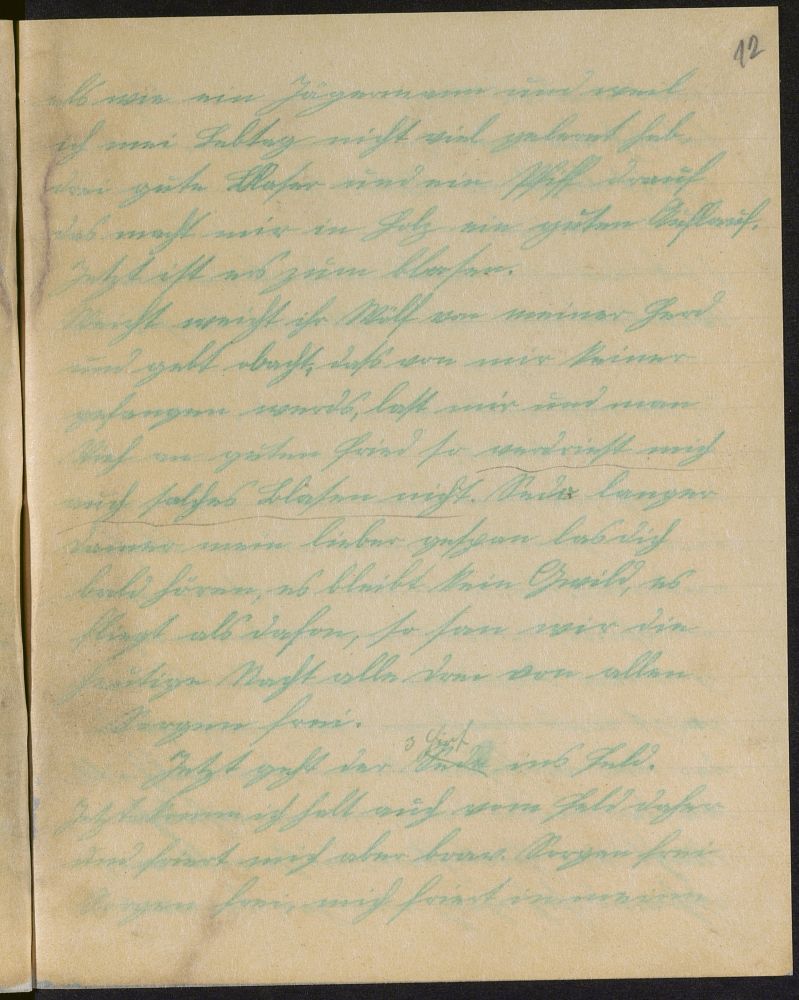 12
als wie ein Jägermann und weil
ich mei Lebtag nicht viel gelernt hab.
drei gute Blaser und ein Pfiff drauf
das macht mir in Holz ein guten
Jetzt ist es zum blasen.
Weicht weicht ihr Wölf von meiner Herd
und gebt obacht, daß von mir keiner
gefangen werds, laßt mir und man
Vieh an guten Fried so verdrießt mich
auch solches Blasen nicht. Sede langer
mein lieber gespan las dich
bald hören, es bleibt kein Gwild, es
fliegt als dafon, so san wir die
heutige Nacht alle drei von allen
Sorgen frei.
3 Hirt
Jetzt geht der ins Feld.
Jetzt komm ich halt auch vom Feld daher
und friert mich aber brav. Sorgen frei
Sorgen frei, mich friert in meinen